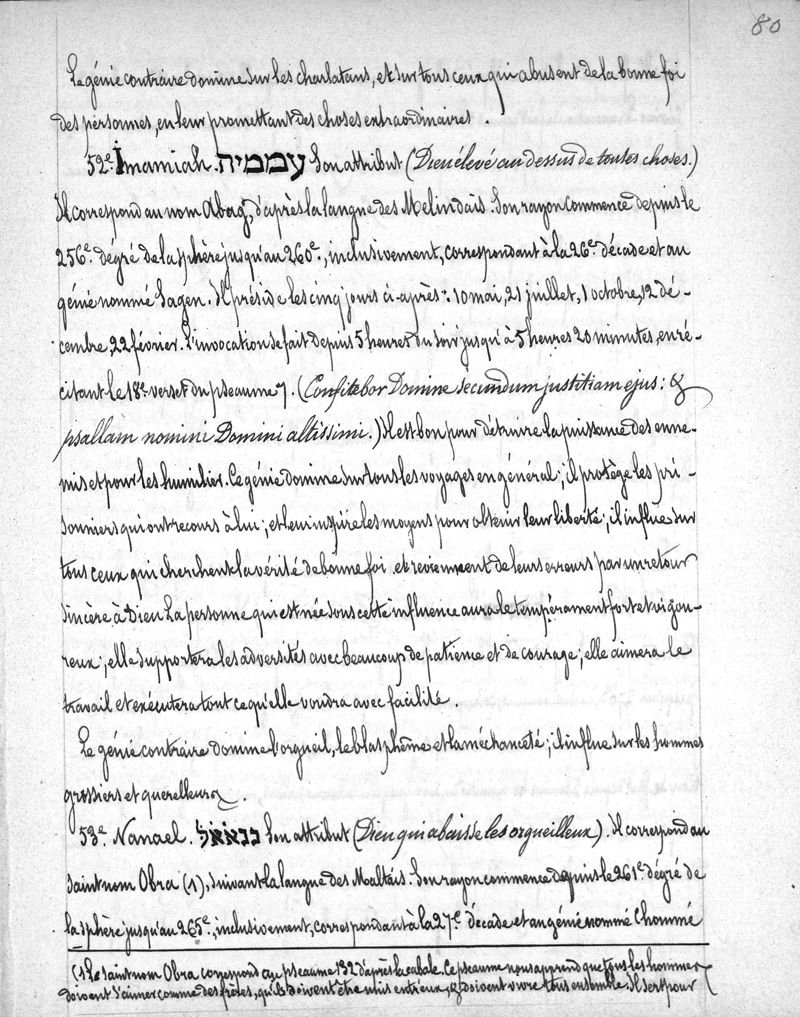 80
Le génie contraire domine sur les charlatans, et sur tous ceux qui abusent de la bonne foi
des personnes, en leur promettant des choses extraordinaires.
52e. Imamiah. עממיה Son attribut (Dieu élevé au dessus de toutes choses.)
Il correspond au nom Abag, d'après la langue des Melindais. Son rayon commence depuis le
256e. dégré de la sphère jusqu'au 260e., inclusivement, correspondant à la 26e. décade et au
génie nommé Sagen. Il préside les cinq jours ci-après: 10 mai, 21 juillet, 1 octobre, 12 dé-
cembre, 22 février. L'invocation se fait depuis 5 heures du soir jusqu'à 5 heures 20 minutes, en ré-
citant le 18e. verset du pseaume 7. (Confitebor Domine secundum justitiam ejus: &
psallam nomini Domini altissimi.) Il est bon pour détruire la puissance des enne-
mis et pour les humilier. Ce génie domine sur tous les voyages en général; il protège les pri-
sonniers qui ont recours à lui; et leur inspire les moyens pour obtenir leur liberté; il influe sur
tous ceux qui cherchent la vérité de bonne foi et reviennent de leurs erreurs par un retour
sincère à Dieu. La personne qui est née sous cette influence aura le tempérament fort et vigou-
reux; elle supportera les adversités avec beaucoup de patience et de courage; elle aimera le
travail et exécutera tout ce qu'elle voudra avec facilité.
Le génie contraire domine l'orgueil, le blasphème et la méchanceté; il influe sur les hommes
grossiers et querelleurs.
53e. Nanael. Son attribut (Dieu qui abaisse les orgueilleux). Il correspond au
saint nom Obra (1), suivant la langue des Maltais. Son rayon commence depuis le 261e dégré de
la sphère jusqu'au 265e., inclusivement, correspondant à la 27e. décade et au génie nommé Choumé
(1) Le saint nom Obra correspond au pseaume 132 d'après la cabale. Ce pseaume nous apprend que tous les hommes
doivent s'aimer comme des frères, qu'ils doivent être unis entr'eux, & doivent vivre tous ensemble. Il sert pour